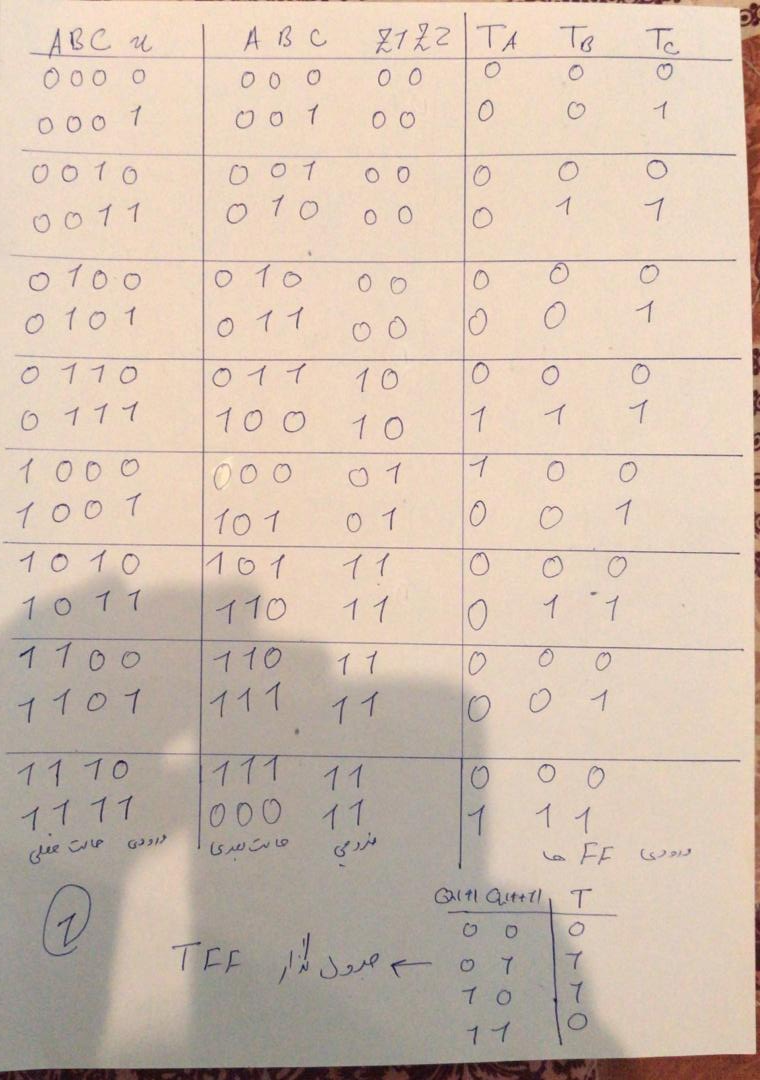 A B C x A B C Z1 Z2 TA TB TC
0 0 0 0 0 0 0 0 0 0 0 0
0 0 0 1 0 0 1 0 0 0 0 1
0 0 1 0 0 0 1 0 0 0 0 0
0 0 1 1 0 1 0 0 0 0 1 1
0 1 0 0 0 1 0 0 0 0 0 0
0 1 0 1 0 1 1 0 0 0 0 1
0 1 1 0 0 1 1 1 0 0 0 0
0 1 1 1 1 0 0 1 0 1 1 1
1 0 0 0 0 0 0 0 1 1 0 0
1 0 0 1 1 0 1 0 1 0 0 1
1 0 1 0 1 0 1 1 1 0 0 0
1 0 1 1 1 1 0 1 1 0 1 1
1 1 0 0 1 1 0 1 1 0 0 0
1 1 0 1 1 1 1 1 1 0 0 1
1 1 1 0 1 1 1 1 1 0 0 0
1 1 1 1 0 0 0 1 1 1 1 1
حالت فعلی ورودی حالت بعدی خروجی ورودی FF ها
Q(t) Q(t+1) T
0 0 0
0 1 1
1 0 1
1 1 0
جدول گذار TFF ←
1